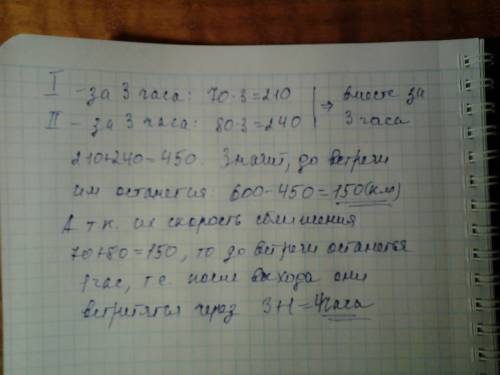 I – за 3 часа: 70·3=210 | ⇒ вместе за
II – за 3 часа: 80·3=240 | 3 часа
210+240=450. Значит, до встречи
им останется: 600-450=150(км)
А т.к. их скорость сближения
70+80=150, то до встречи останется
1 час, т.е. после выхода они
встретятся через 3+1=4часа